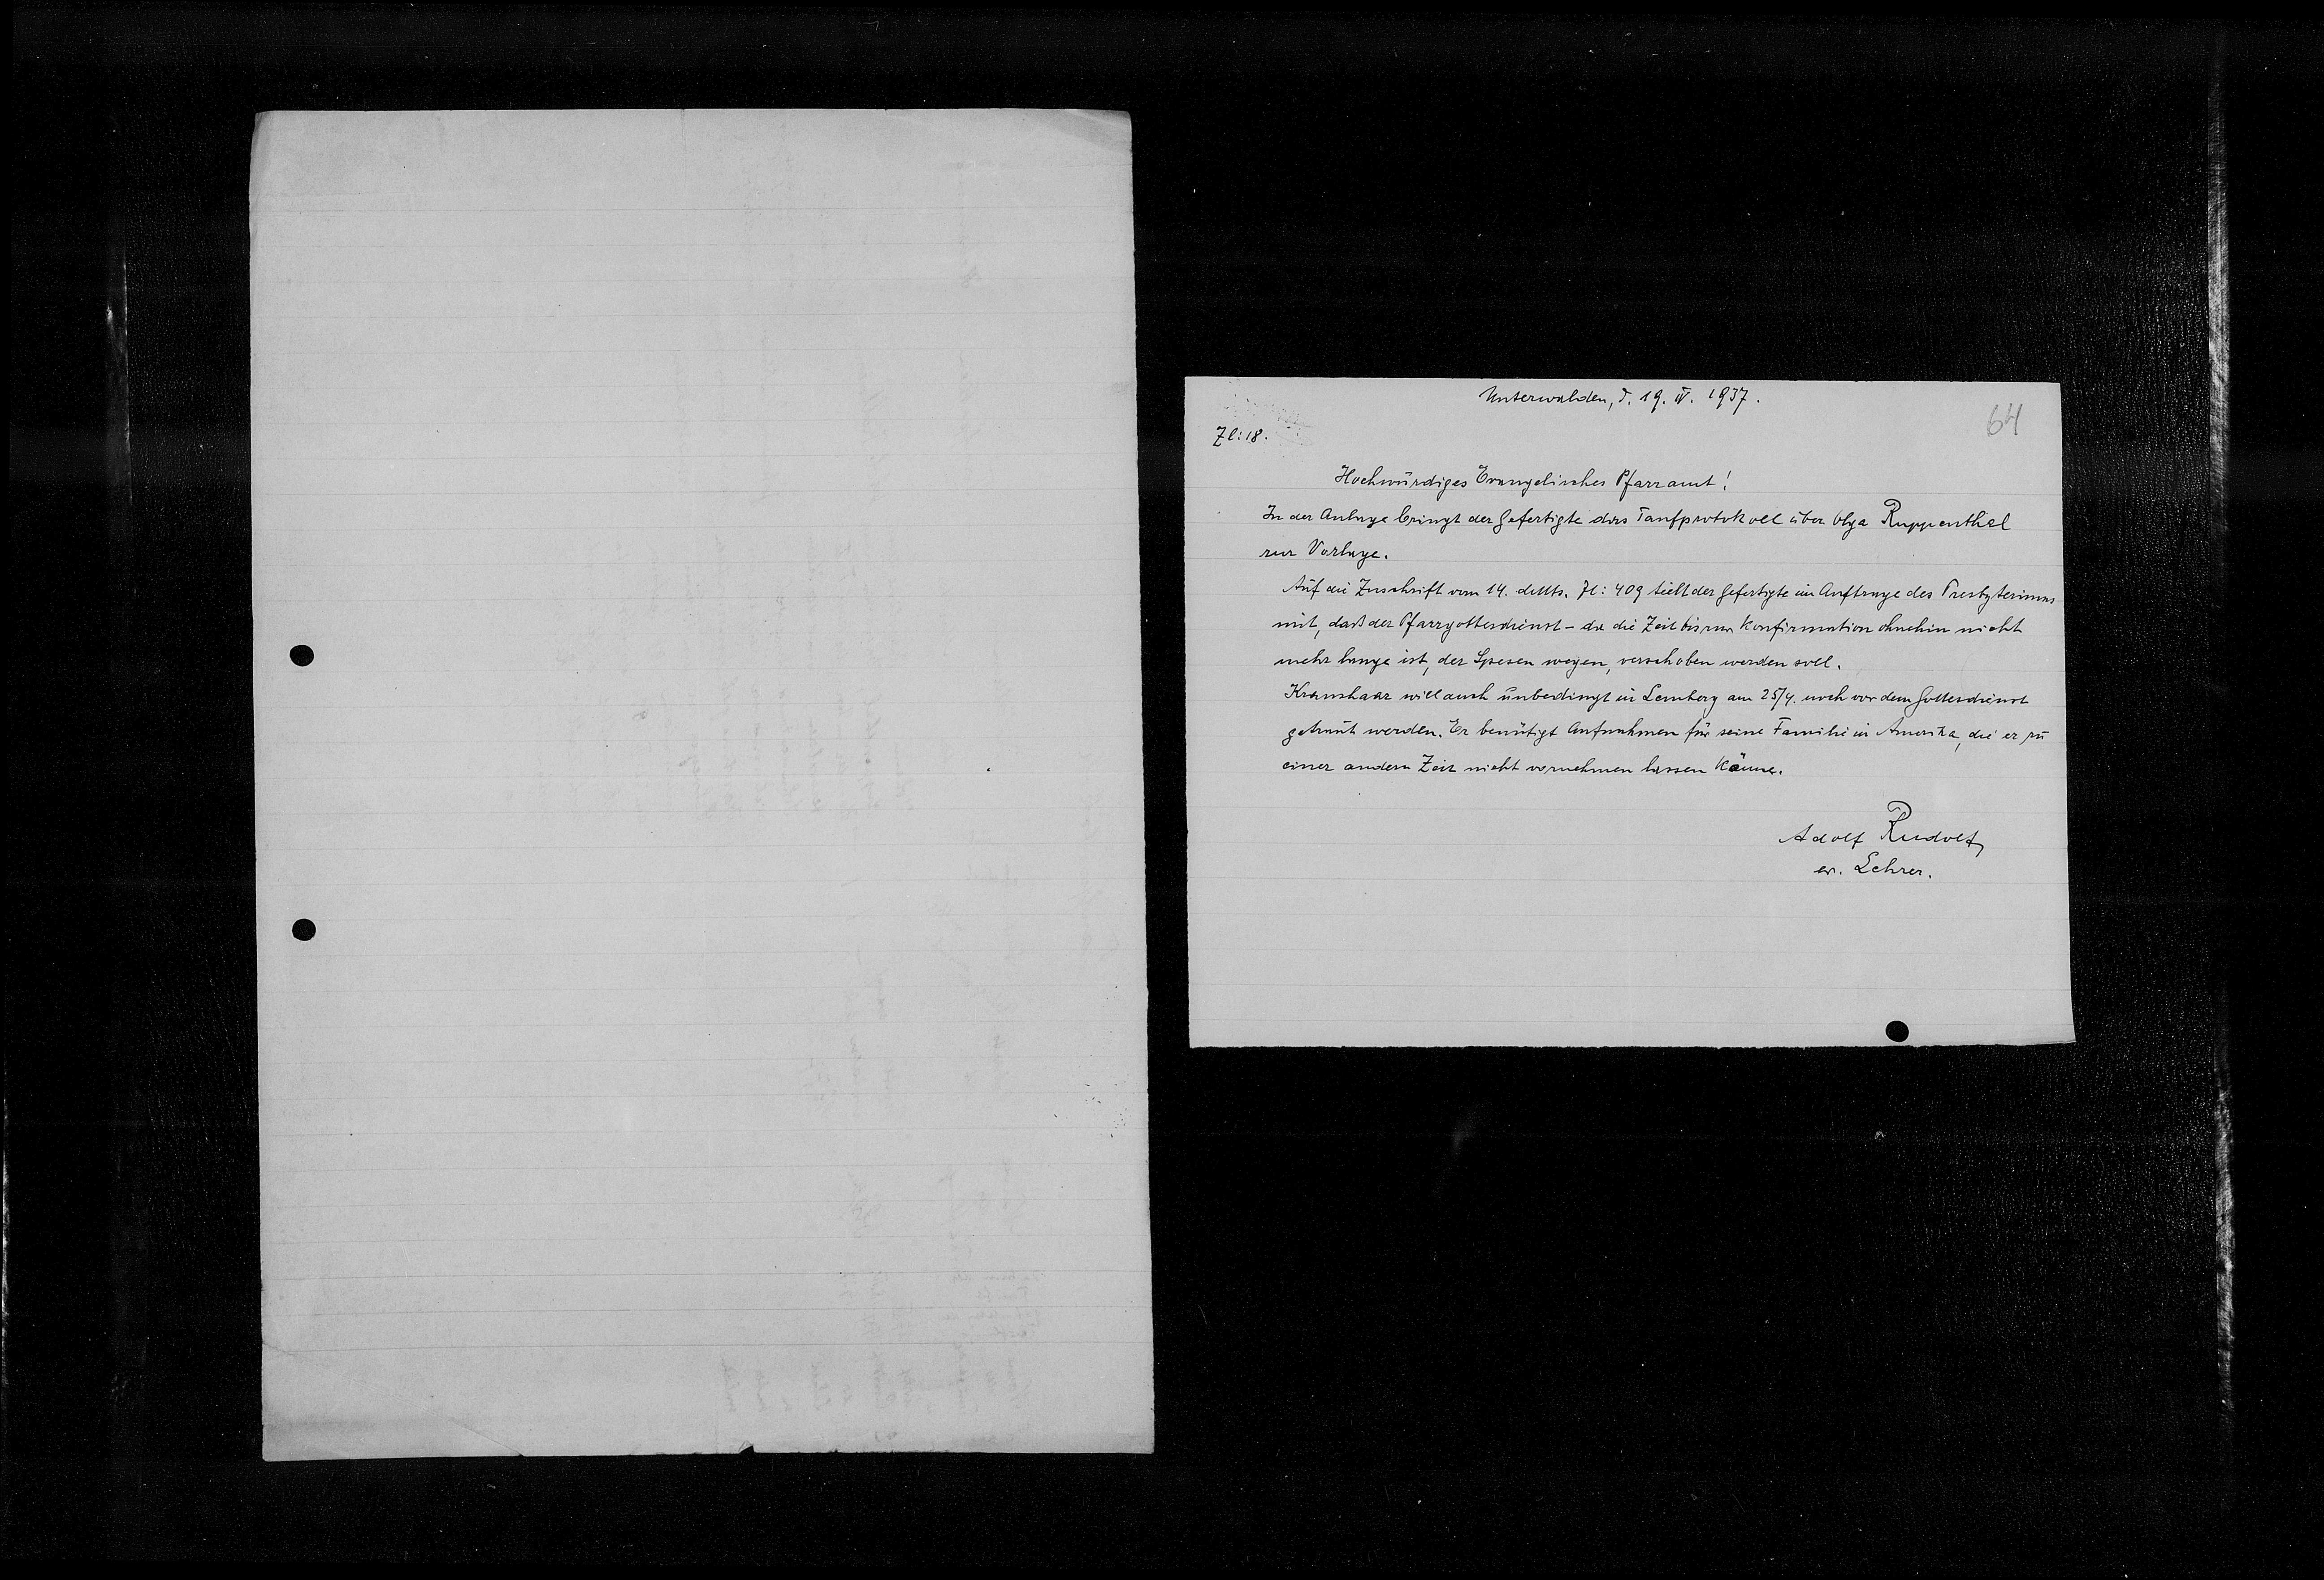 Unterwalden, d. 19. IV. 1937.
64
Zl: 18.
Hochwürdiges Evangelisches Pfarramt!
In der Anlage bringt der Gefertigte das Taufprotokoll über Olga Ruppenthal
zur Vorlage.
Auf die Zuschrift vom 14. d. Mts. Zl: 409 teilt der Gefertigte im Auftrage des Presbyteriums
mit, daß der Pfarrgottesdienst – da die Zeit bis zur Konfirmation ohnehin nicht
mehr lange ist, der Spesen wegen, verschoben werden soll.
Kraushaar will auch unbedingt in Lemberg am 25/4. noch vor dem Gottesdienst
getraut werden. Er benötigt Aufnahmen für seine Familie in Amerika, die er zu
einer andern Zeit nicht vornehmen lassen könne.
Adolf Rudolf,
ev. Lehrer.